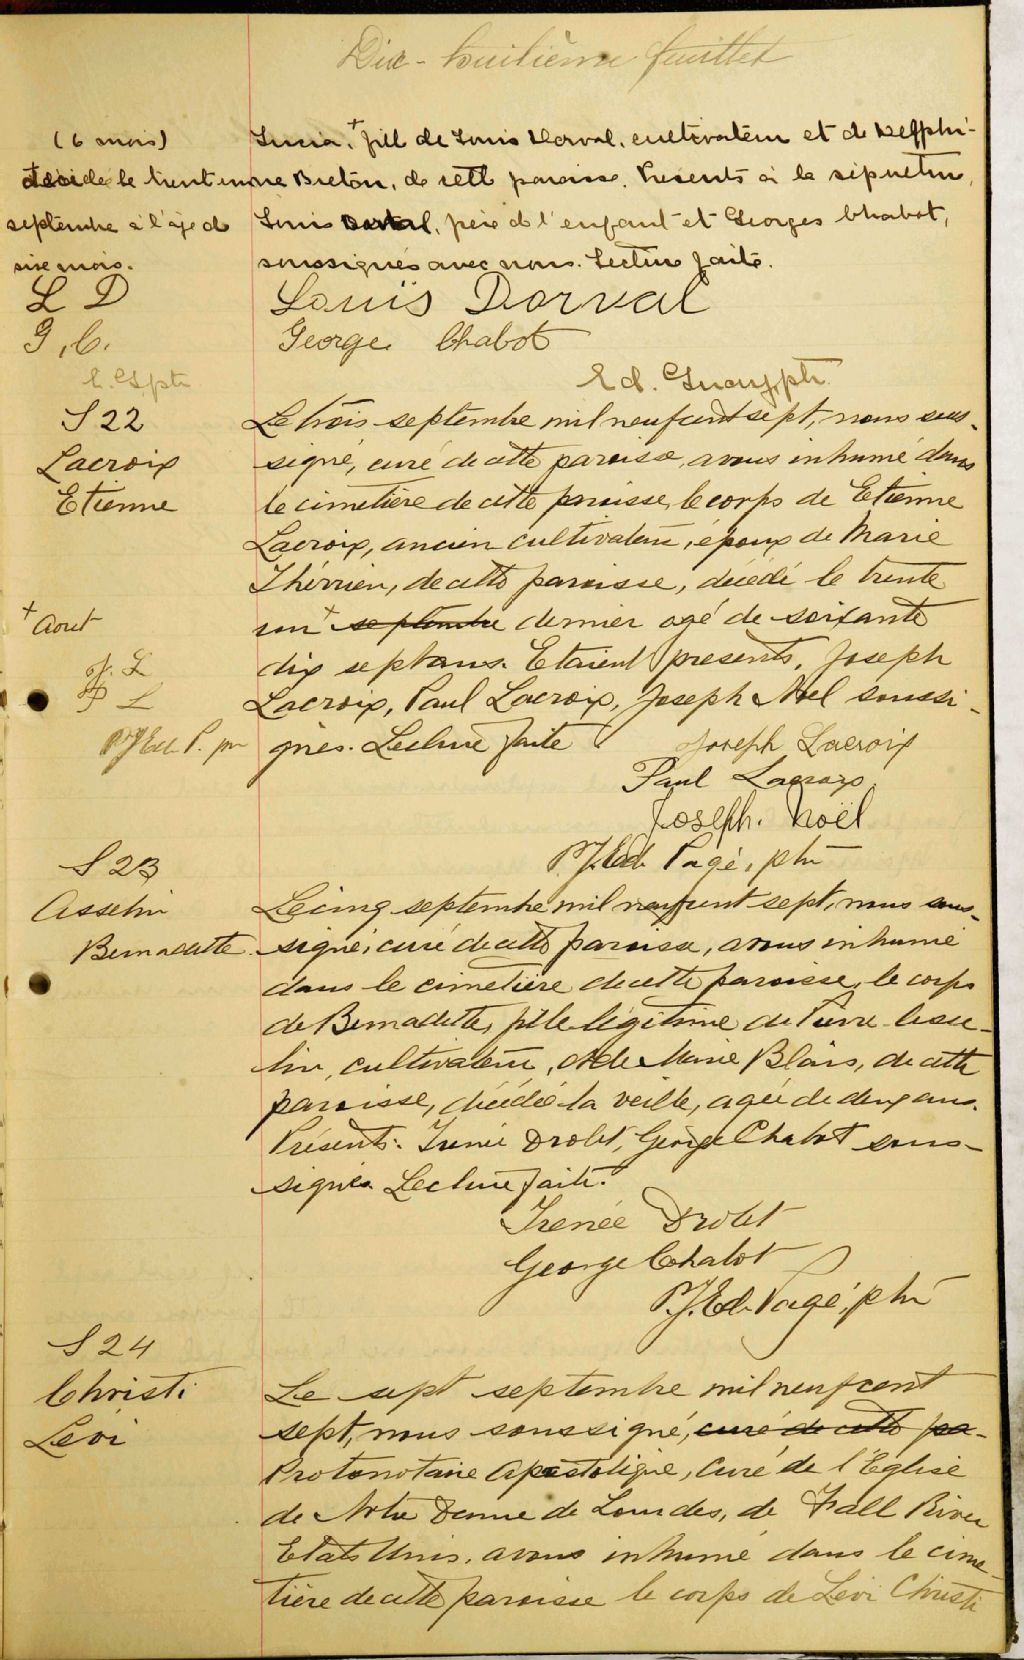 Dix-huitième feuillet
(6 mois)
Lucia, + fill de Louis Dorval, cultivateur et de Delphi-
+ décidée le trent une
ne Breton, de cette paroisse. Présents à la sépulture,
septembre à l'âge de
Louis Dorval, père de l'enfant et Georges Chabot,
six mois.
soussignés avec nous. Lecture faite.
L D
Louïs Dorval
G. C.
George Chabot
Ed. ptr
S 22
Lacroix
Etienne
Le trois septembre mil neuf cent sept, nous sous-
signé, curé de cette paroisse, avons inhumé dans
le cimetière de cette paroisse, le corps de Etienne
Lacroix, ancien cultivateur, époux de Marie
Thérrien, de cette paroisse, décédé le trente
+ Aout
un + septembre dernier agé de soixante
dix sept ans. Etaient présents, Joseph
J. L
P L
Lacroix, Paul Lacroix, Joseph Noel soussi-
P.J. Ed. P. ptr
gnés. Lecture faite
Joseph Lacroix
Paul Lacroix
Joseph. Noël
P.J. Ed. Pagé, ptr
S 23
Asselin
Bernadette
Le cinq septembre mil neuf cent sept, nous sous-
signé, curé de cette paroisse, avons inhumé
dans le cimetière de cette paroisse, le corps
de Bernadette, fille légitime de Pierre Asse-
lin, cultivateur, et de Marie Blais, de cette
paroisse, décédée la veille, agée de deux ans.
Présents: Irenée Drolet, George Chabot sous-
signés. Lecture faite.
Irenée Drolet
George Chabot
P.J. Ed. Pagé, ptr
S 24
Christi
Lévi
Le sept septembre mil neuf cent
sept, nous soussigné, curé de cette pa-
Protonotaire Apostolique, Curé de l'Eglise
de Notre Dame de Lourdes, de Fall River
Etats Unis, avons inhumé dans le cime-
tière de cette paroisse le corps de Lévi Christi